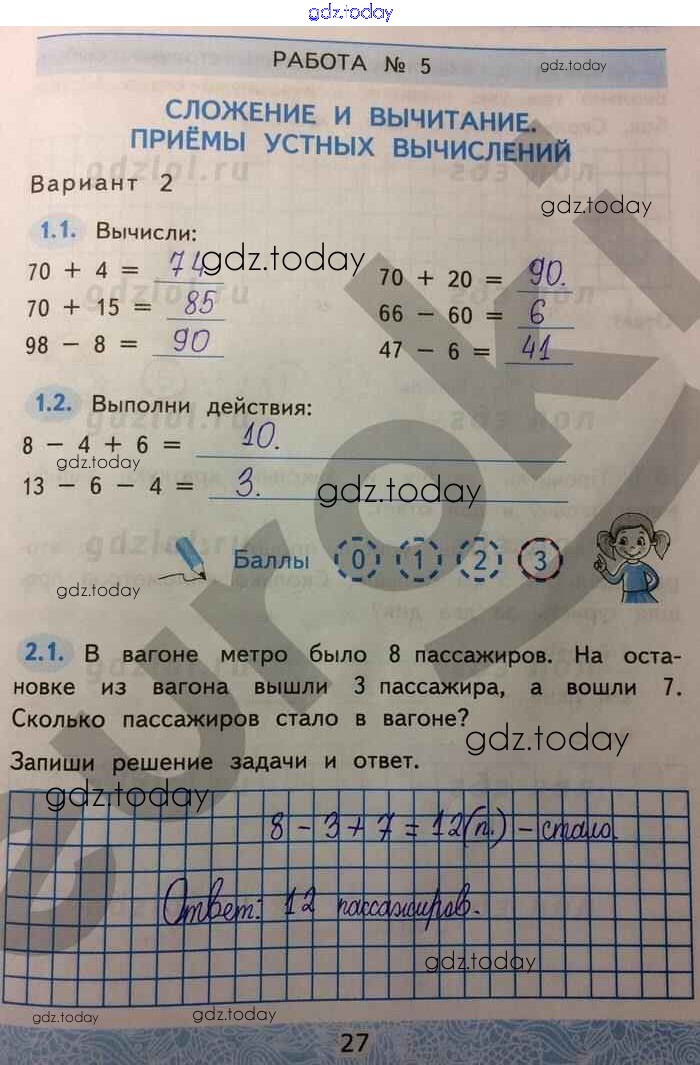 gdz.today
РАБОТА № 5 gdz.today
СЛОЖЕНИЕ И ВЫЧИТАНИЕ.
ПРИЁМЫ УСТНЫХ ВЫЧИСЛЕНИЙ
gdzlol.ru
Вариант 2
gdz.today
1.1. Вычисли:
70 + 4 = 74 gdz.today 70 + 20 = 90.
70 + 15 = 85 66 − 60 = 6
98 − 8 = 90 47 − 6 = 41
1.2. Выполни действия:
8 − 4 + 6 = 10.
gdz.today
13 − 6 − 4 = 3. gdz.today
Баллы 0 1 2 3
gdz.today
2.1. В вагоне метро было 8 пассажиров. На оста-
новке из вагона вышли 3 пассажира, а вошли 7.
Сколько пассажиров стало в вагоне?
gdz.today
Запиши решение задачи и ответ.
gdz.today
8 − 3 + 7 = 12 (п.) − стало.
Ответ: 12 пассажиров.
gdz.today
gdz.today gdz.today gdz.today
27
euroki